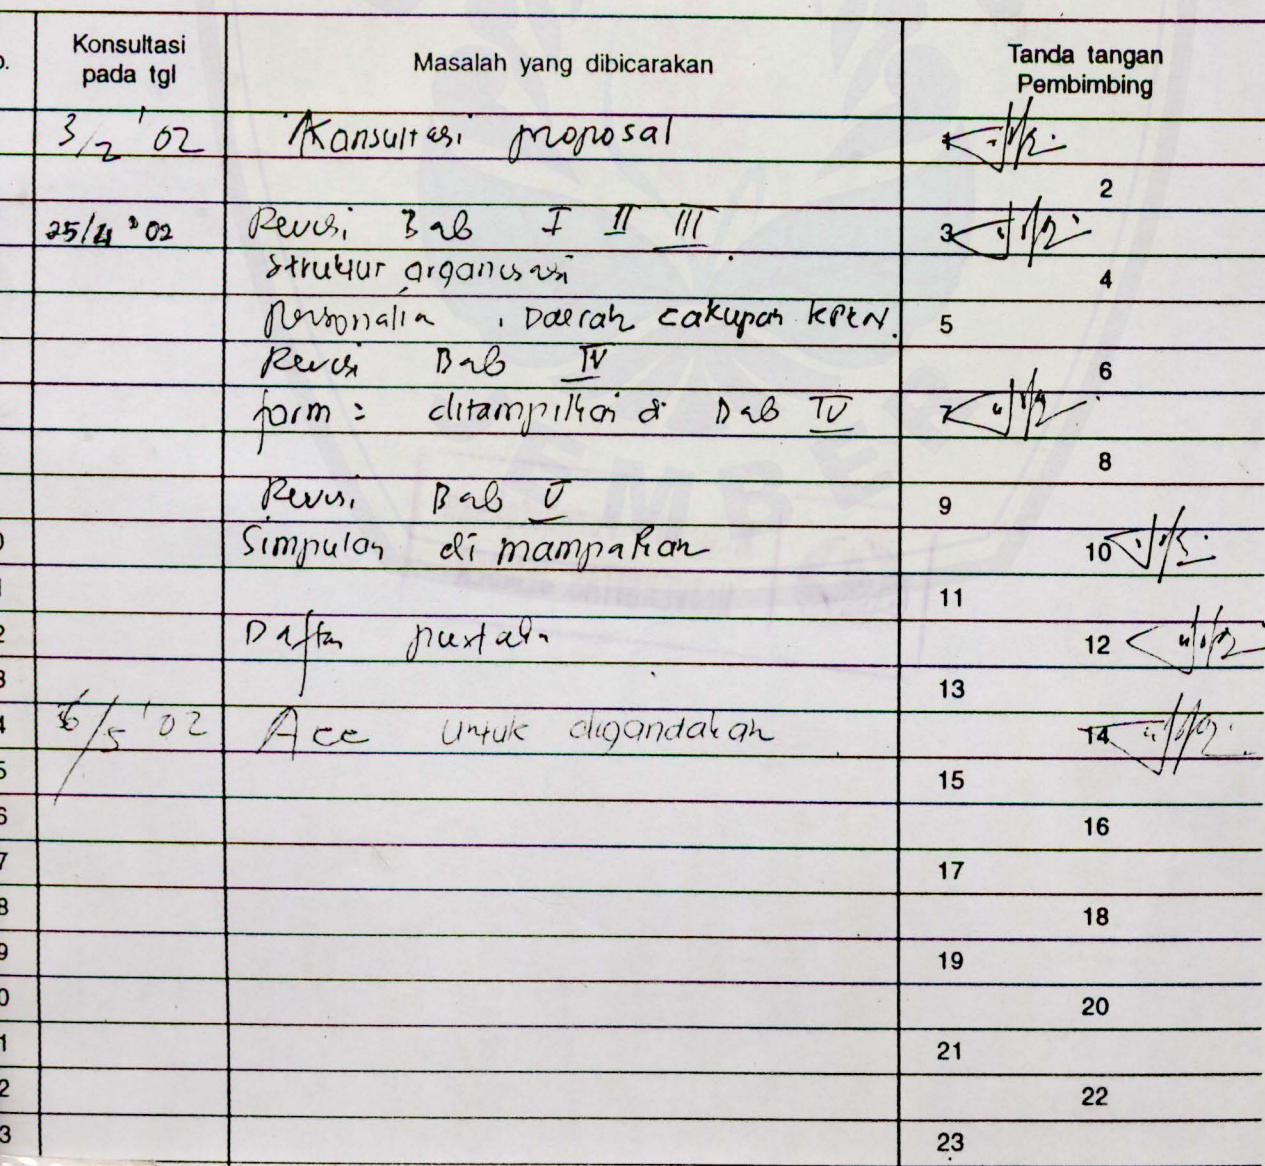 Konsultasi pada tgl Masalah yang dibicarakan Tanda tangan Pembimbing
3/2 '02 Konsultasi proposal
2
25/4 '02 Revisi Bab I II III 3
Struktur organisasi 4
Personalia, Daerah cakupan KPKN. 5
Revisi Bab IV 6
form = ditampilkan di Bab IV 7
8
Revisi Bab V 9
Simpulan di 10
11
Daftar pustaka 12
13
6/5 '02 Acc untuk digandakan 14
15
16
17
18
19
20
21
22
23